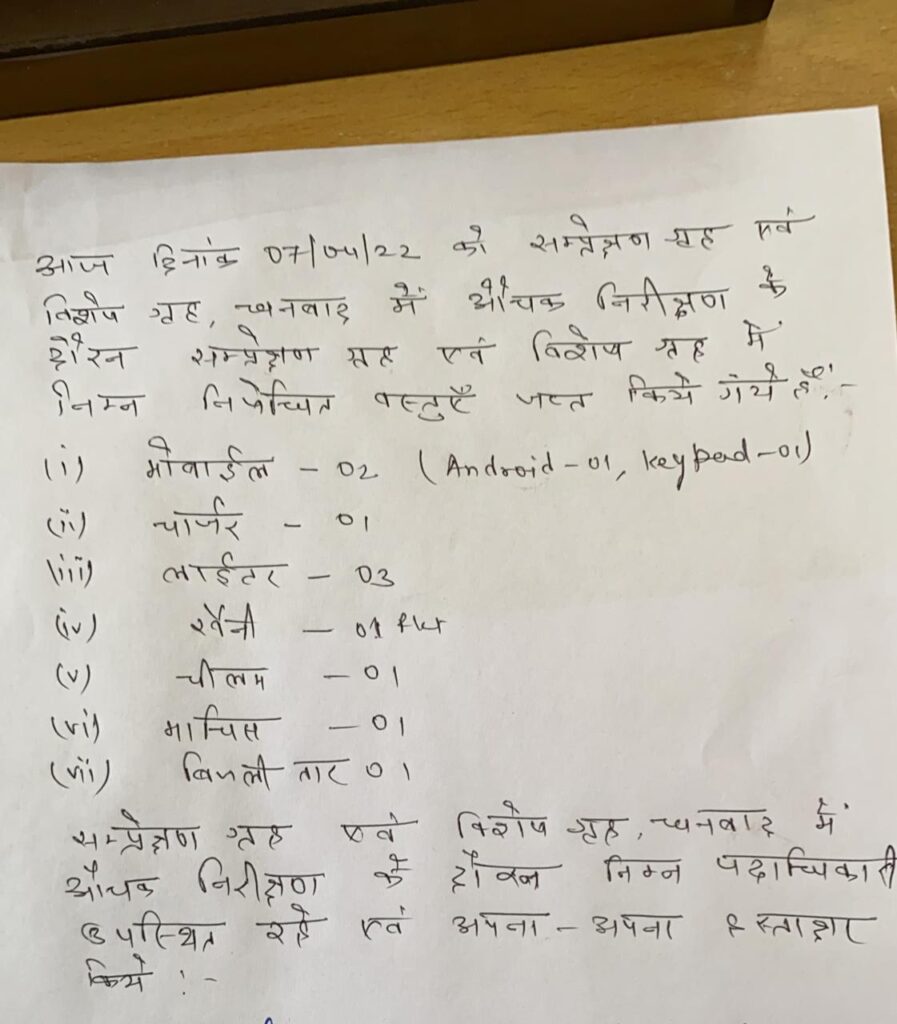 आज दिनांक 07/04/22 को सम्प्रेक्षण गृह एवं
विशेष गृह, धनबाद में औचक निरीक्षण के
दौरन सम्प्रेक्षण गृह एवं विशेष गृह में
निम्न निषेधित वस्तुएँ जप्त किये गये हैं:-
(i) मोबाईल - 02 (Android-01, keypad-01)
(ii) चार्जर - 01
(iii) लाईटर - 03
(iv) खैनी - 01
(v) चीलम - 01
(vi) माचिस - 01
(vii) बिजली तार 01
सम्प्रेक्षण गृह एवं विशेष गृह, धनबाद में
औचक निरीक्षण के दौरन निम्न पदाधिकारी
उपस्थित रहे एवं अपना - अपना हस्ताक्षर
किये :-